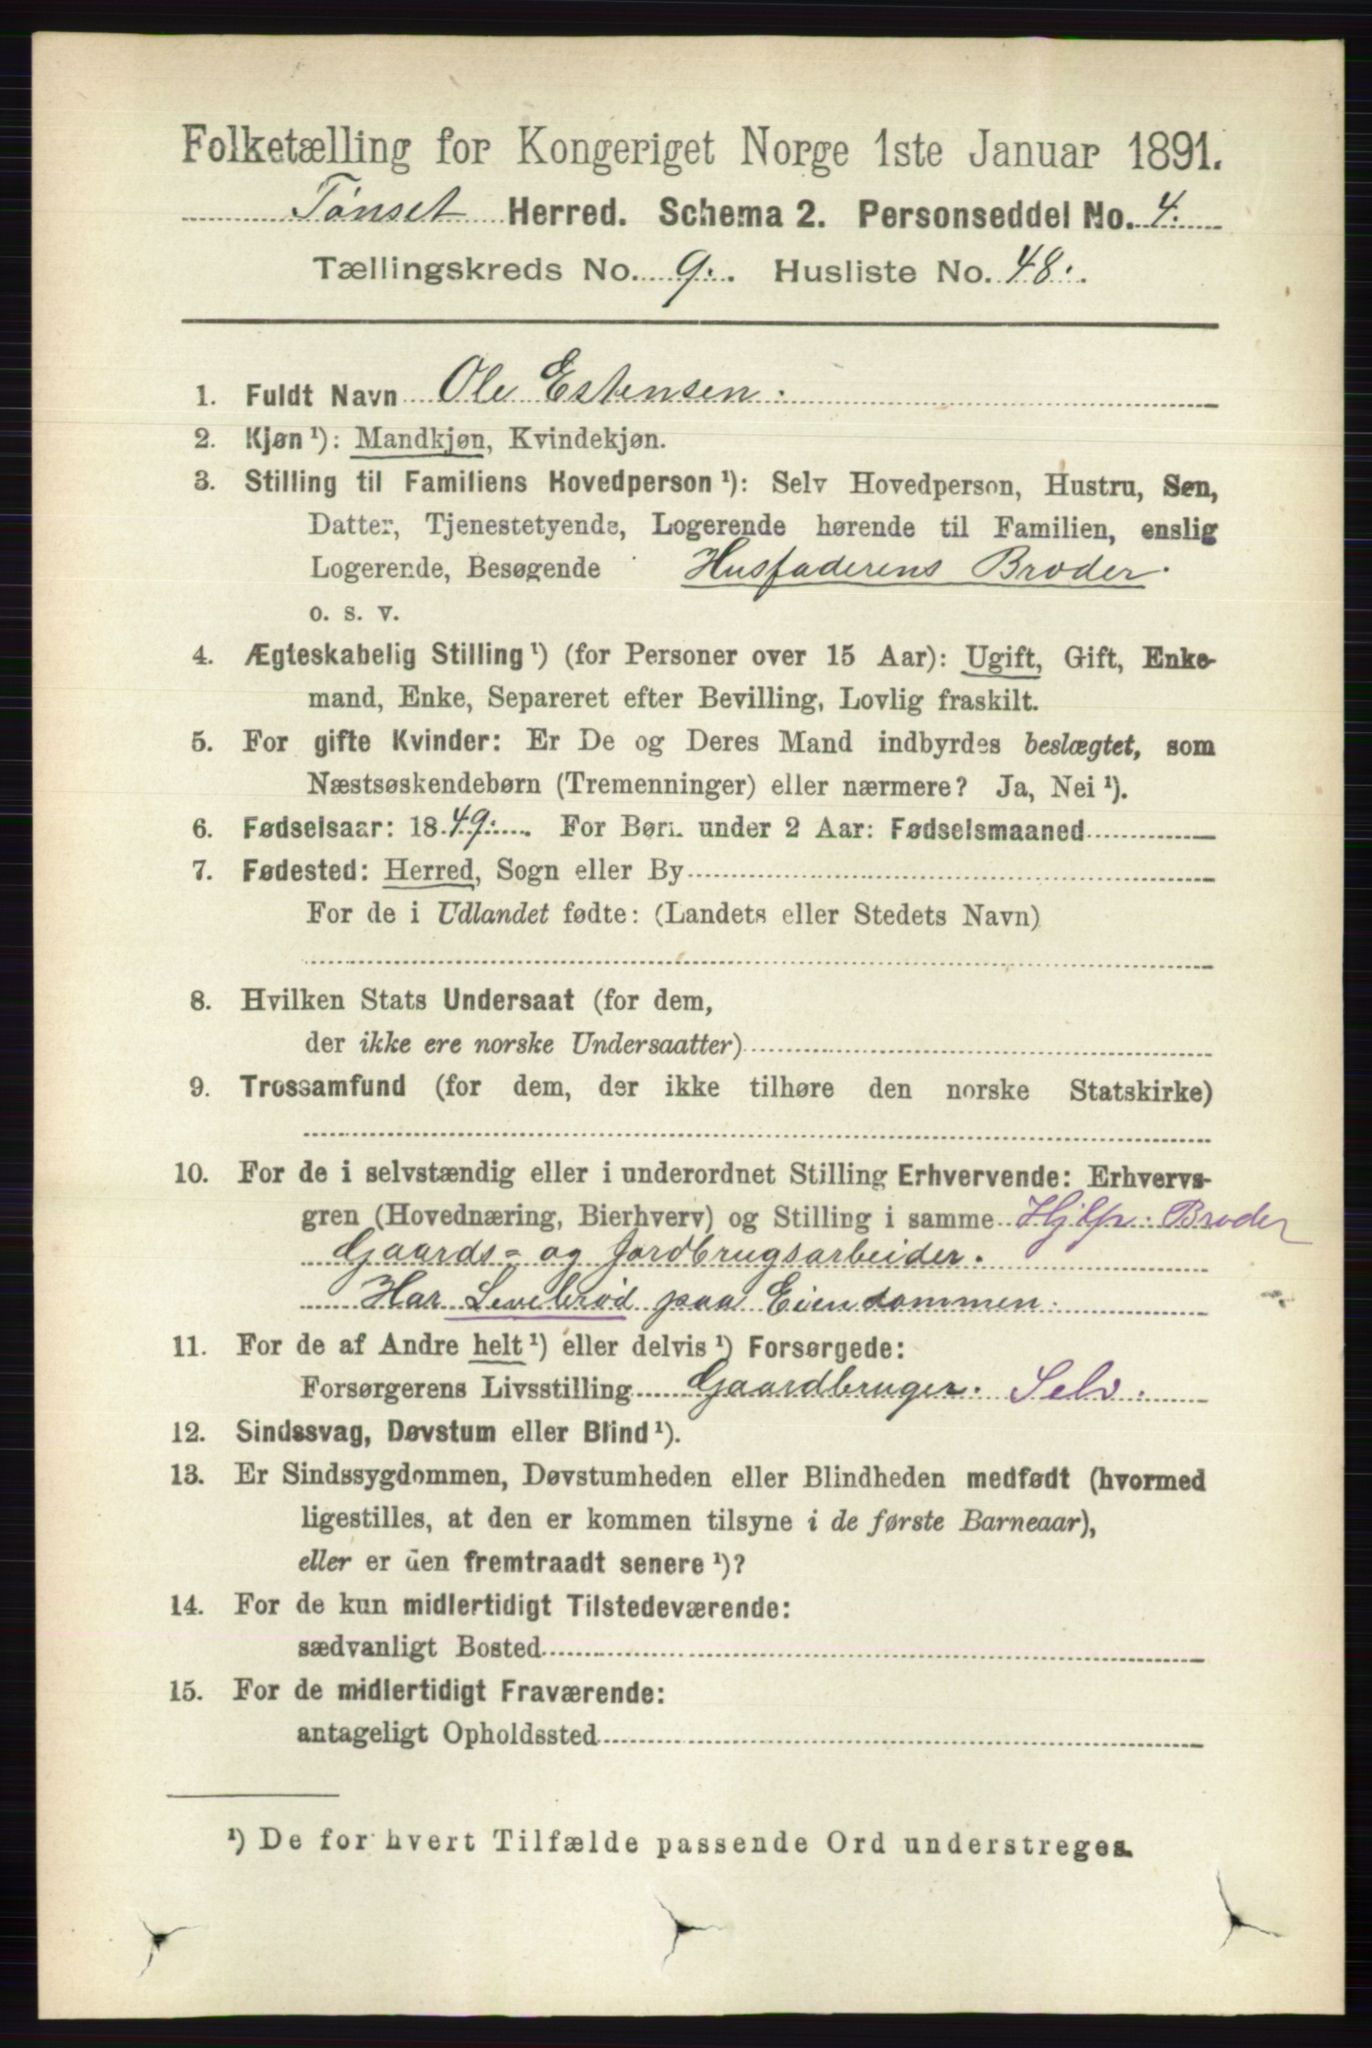 Folketælling for Kongeriget Norge 1ste Januar 1891.
Tønset Herred. Schema 2. Personseddel No. 4.
Tællingskreds No. 9. Husliste No. 48.
1. Fuldt Navn Ole Estensen.
2. Kjøn¹): Mandkjøn, Kvindekjøn.
3. Stilling til Familiens Hovedperson¹): Selv Hovedperson, Hustru, Søn,
Datter, Tjenestetyende, Logerende hørende til Familien, enslig
Logerende, Besøgende Husfaderens Broder.
o. s. v.
4. Ægteskabelig Stilling¹) (for Personer over 15 Aar): Ugift, Gift, Enke-
mand, Enke, Separeret efter Bevilling, Lovlig fraskilt.
5. For gifte Kvinder: Er De og Deres Mand indbyrdes beslægtet, som
Næstsøskendebørn (Tremenninger) eller nærmere? Ja, Nei¹).
6. Fødselsaar: 1849. For Børn under 2 Aar: Fødselsmaaned
7. Fødested: Herred, Sogn eller By
For de i Udlandet fødte: (Landets eller Stedets Navn)
8. Hvilken Stats Undersaat (for dem,
der ikke ere norske Undersaatter)
9. Trossamfund (for dem, der ikke tilhøre den norske Statskirke)
10. For de i selvstændig eller i underordnet Stilling Erhvervende: Erhvervs-
gren (Hovednæring, Bierhverv) og Stilling i samme Hjlp. Broder
Gaards- og Jordbrugsarbeider.
Har Levebrød paa Eiendommen.
11. For de af Andre helt¹) eller delvis¹) Forsørgede:
Forsørgerens Livsstilling Gaardbruger. Selv.
12. Sindssvag, Døvstum eller Blind¹).
13. Er Sindssygdommen, Døvstumheden eller Blindheden medfødt (hvormed
ligestilles, at den er kommen tilsyne i de første Barneaar),
eller er den fremtraadt senere¹)?
14. For de kun midlertidigt Tilstedeværende:
sædvanligt Bosted
15. For de midlertidigt Fraværende:
antageligt Opholdssted
¹) De for hvert Tilfælde passende Ord understreges.